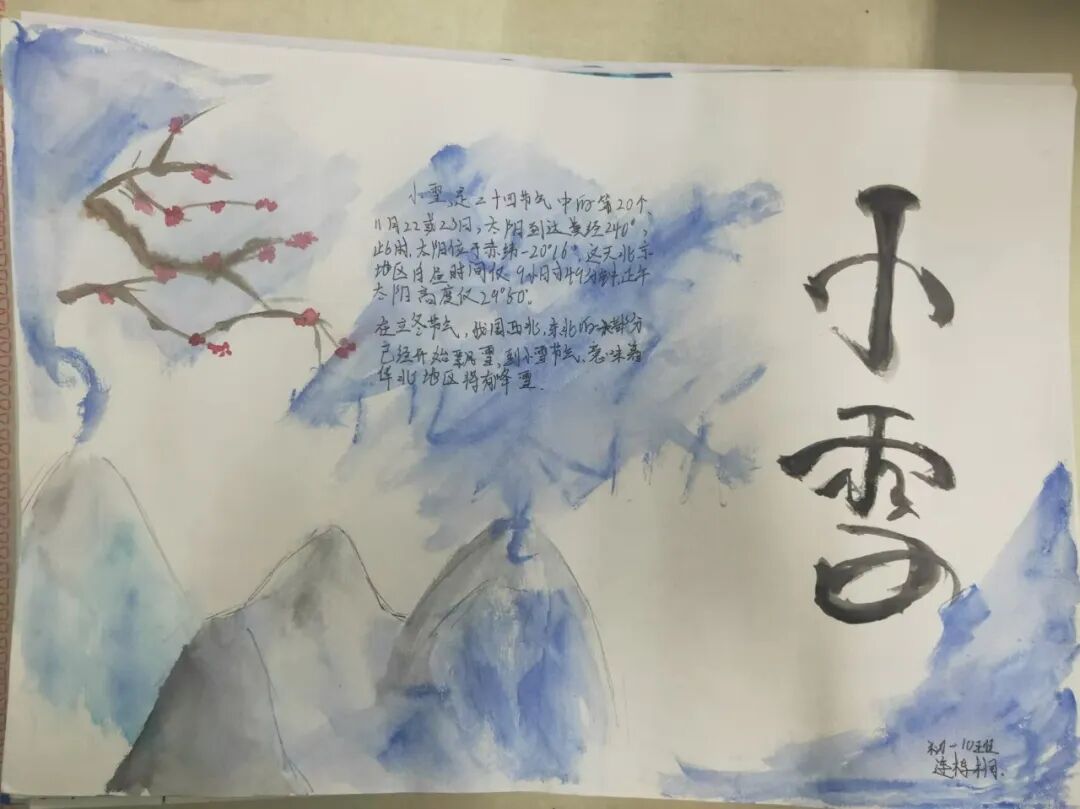 小雪,是二十四节气中的第20个、
11月22或23日,太阳到达黄经240°,
此时,太阳位于赤纬-20°16°,这天北京
地区白昼时间仅9小时49分钟,正午
太阳高度仅29°50°。
在立冬节气,我国西北、东北的大部分
已经开始飘雪,到小雪节气,意味着
华北地区将有降雪.
小雪
初一10班
连